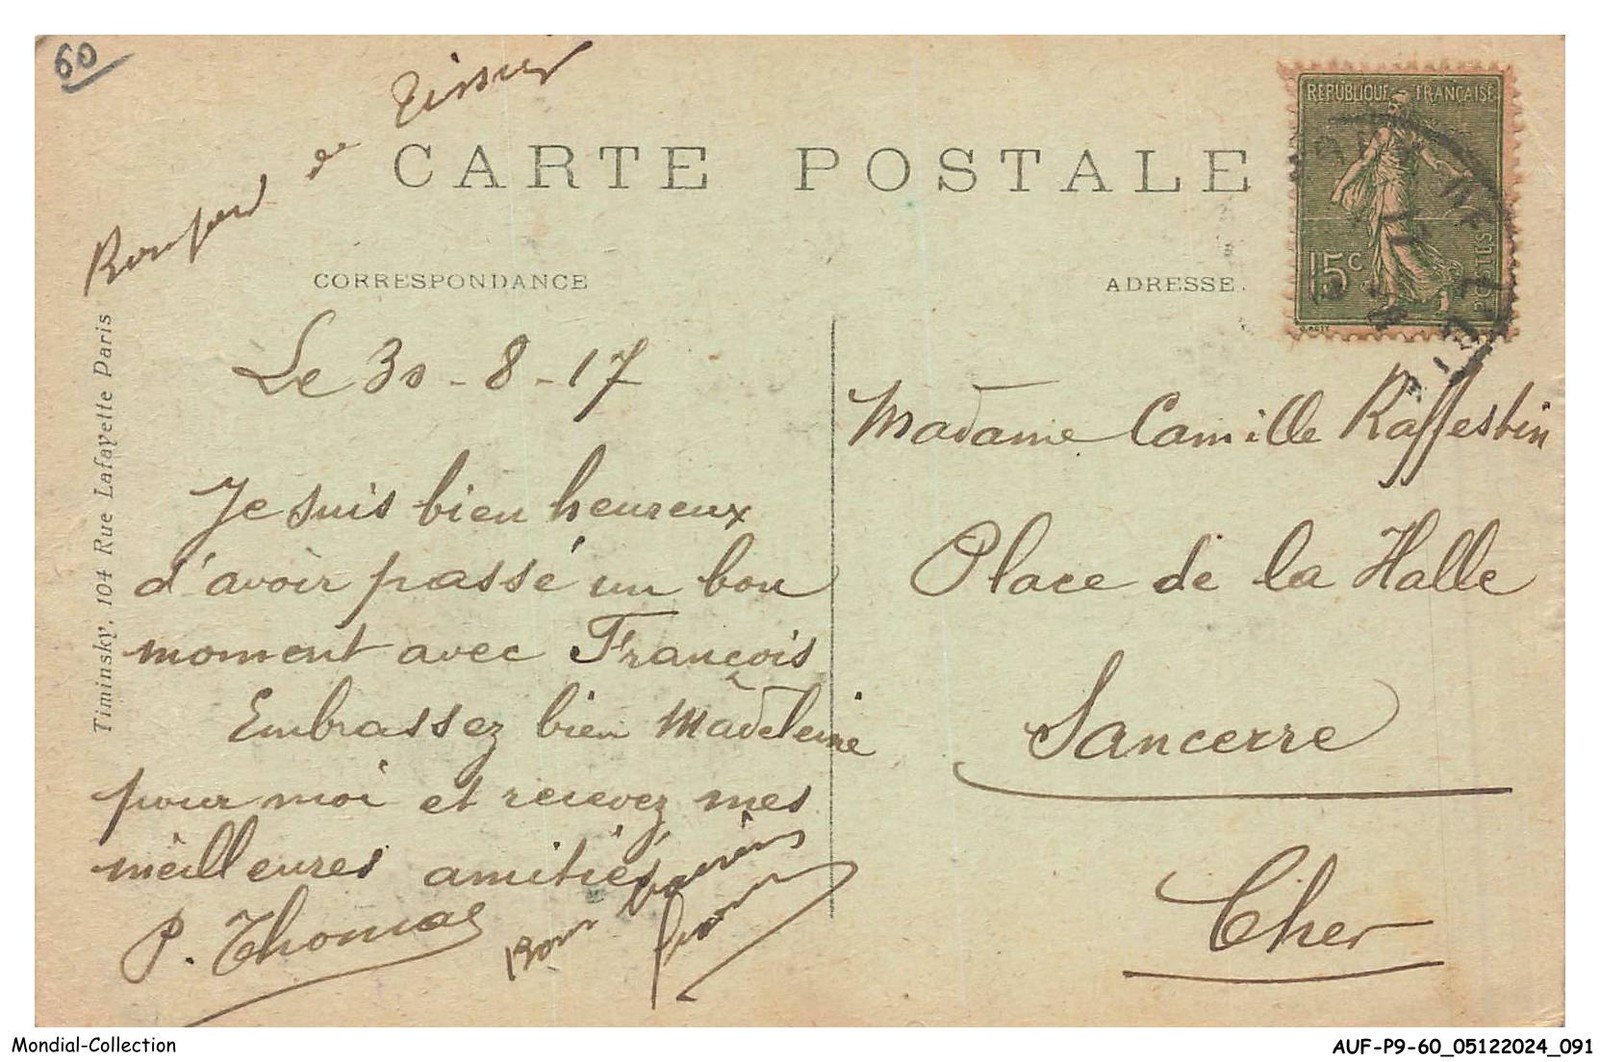 60
Tissier
CARTE POSTALE
REPUBLIQUE FRANÇAISE
15c
POSTES
O. ROTY
CORRESPONDANCE
ADRESSE.
Timinsky, 104 Rue Lafayette Paris
Le 30-8-17
Je suis bien heureux
d'avoir passé un bon
moment avec François
Embrassez bien Madeleine
pour moi et recevez mes
meilleures amitiés
P. Thomas
Bons baisers
Madame Camille Raffestin
Place de la Halle
Sancerre
Cher
Mondial-Collection
AUF-P9-60_05122024_091